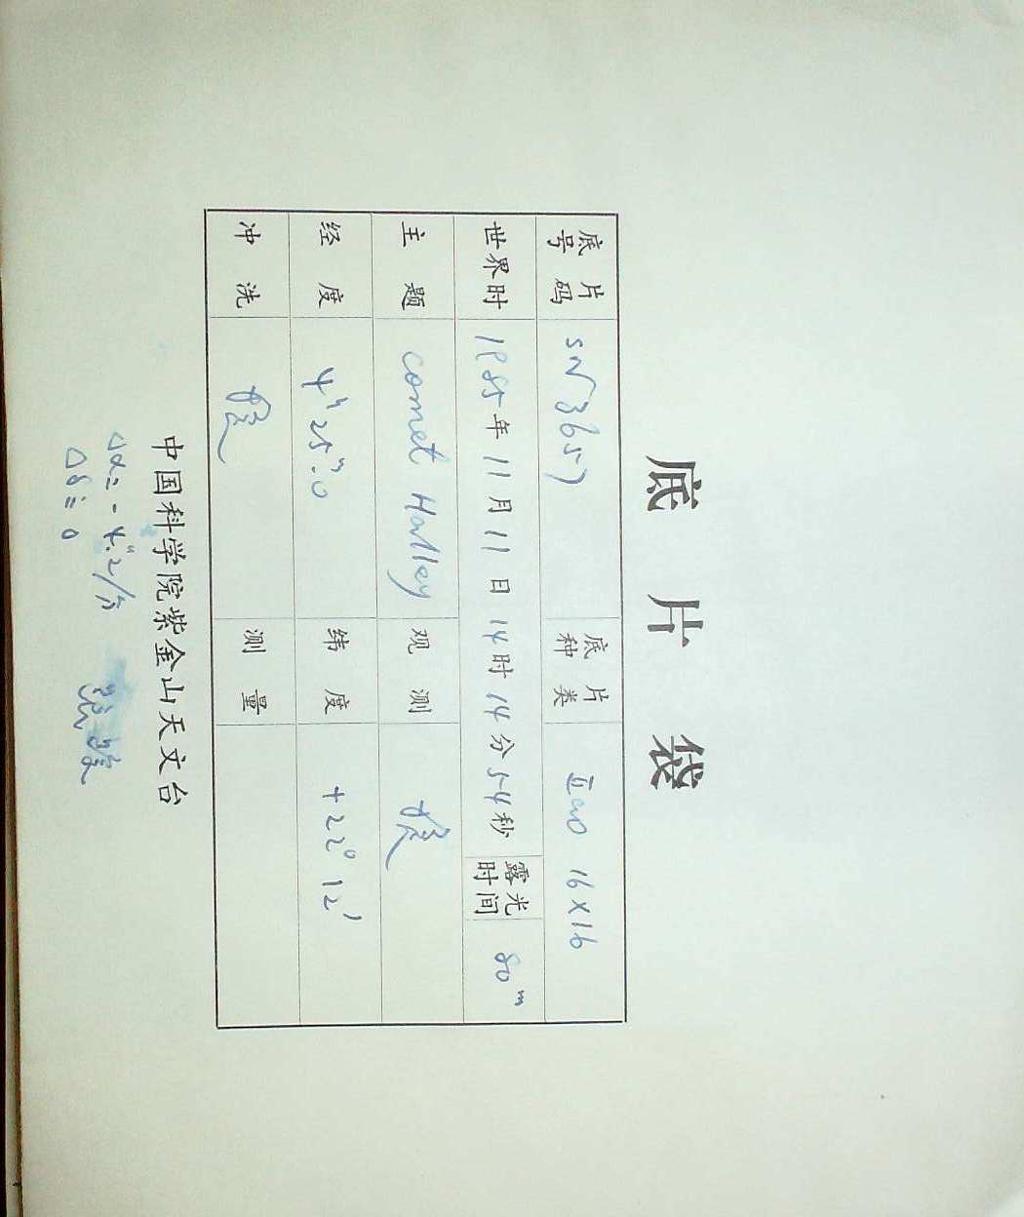 底片袋
底片号码 SN3657 底片种类 IIaO 16×16
世界时 1985年11月11日14时14分54秒 露光时间 80ᵐ
主题 Comet Halley 观测
经度 4ʰ25ᵐ.0 纬度 +22°12'
冲洗 测量
中国科学院紫金山天文台
Δα= -4."2/分
Δδ= 0